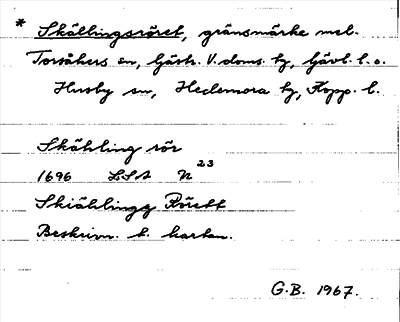 * Skällingsröret, gränsmärke mel.
Torsåkers sn, Gästr. V. doms. hg, Gävl. l. o.
Husby sn, Hedemora hg, Kopp. l.
Skähling rör
1696 LSA N 23
Skiählingz Röret
Beskrivn. t. kartan.
G.B. 1967.